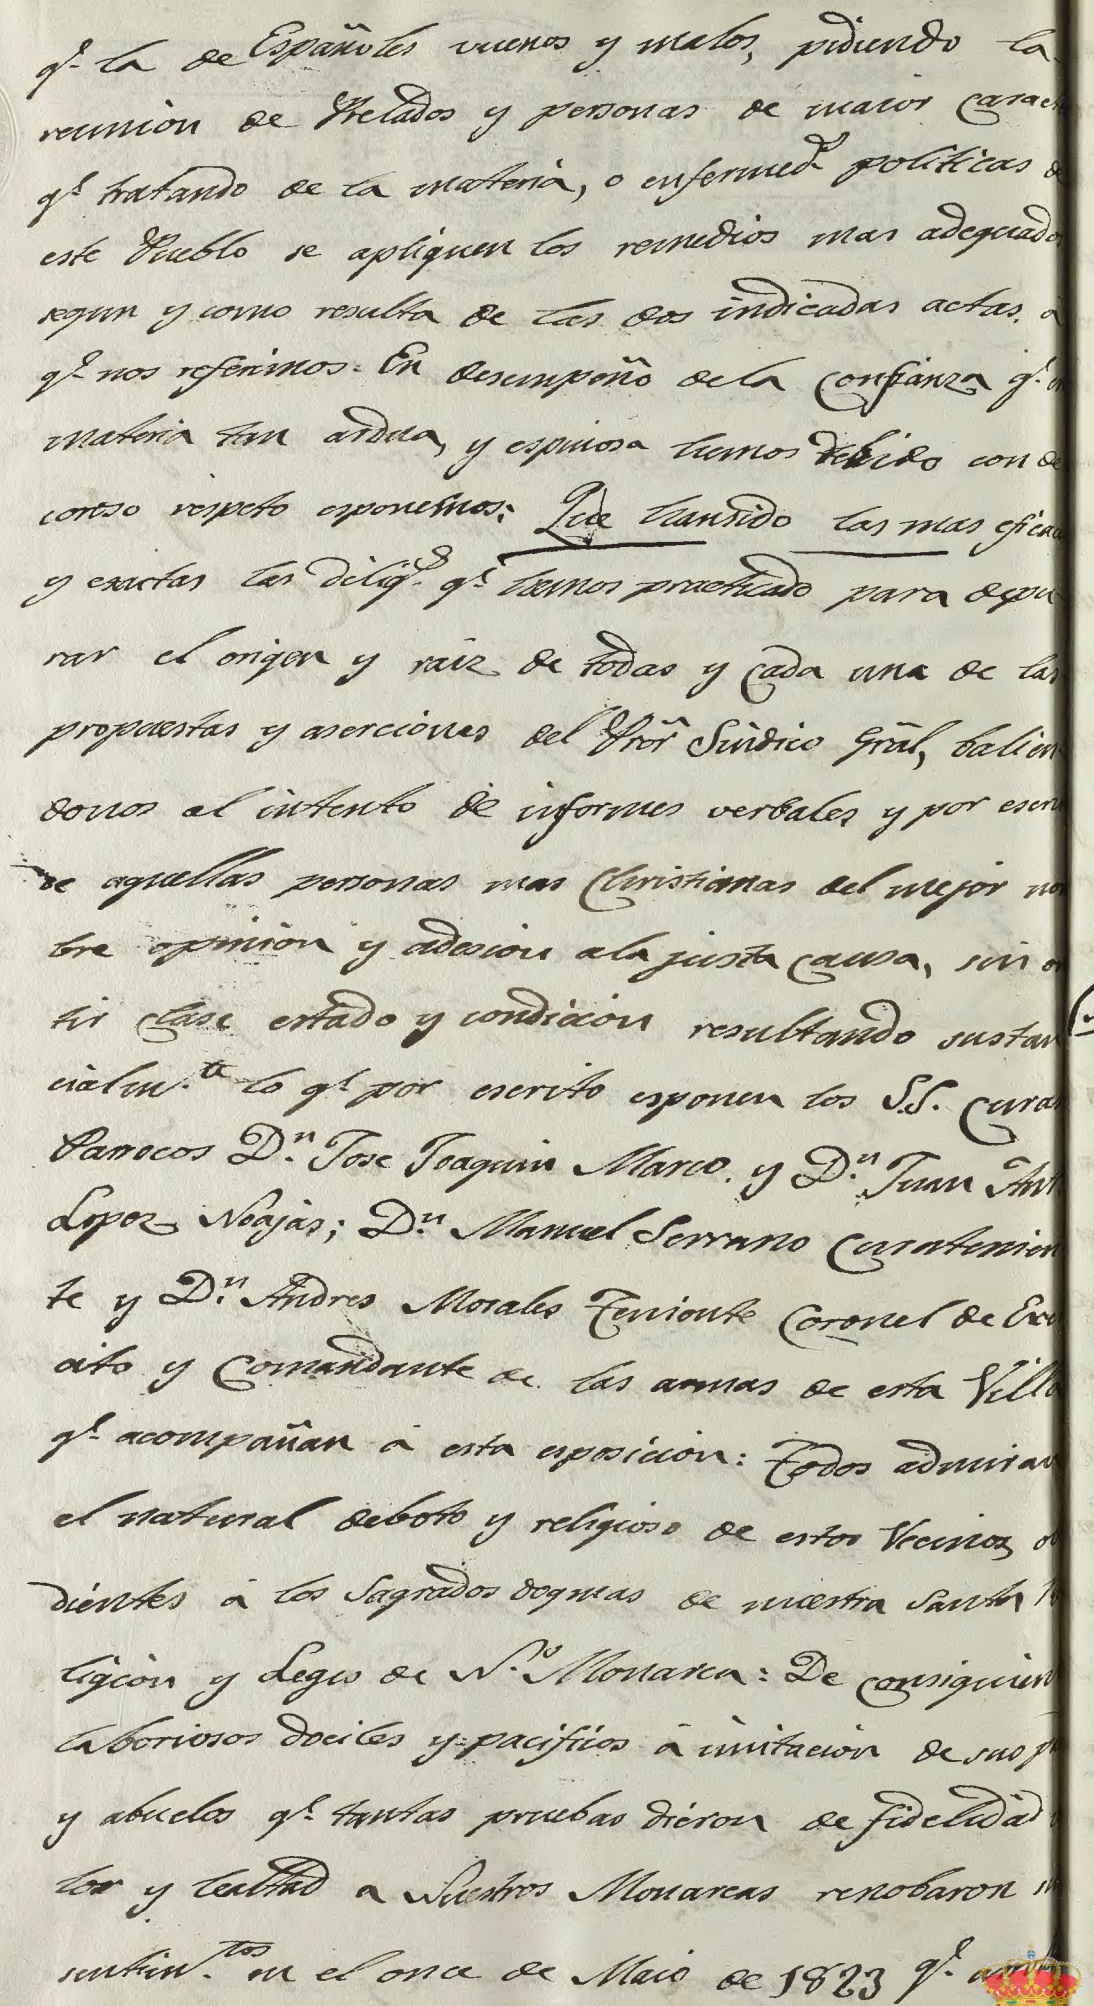 q.e la de Españoles vuenos y malos, pidiendo la
reunion de Prelados y personas de maior caract
q.e tratando de la materia, o enfermed.s politicas de
este Pueblo se apliquen los remedios mas adequados
segun y como resulta de las dos indicadas actas, á
q.e nos referimos: En desempeño de la confianza q.e en
materia tan ardua, y espinosa hemos debido con de
coroso respeto esponemos: Que han sido las mas eficac
y exactas las dilig.s q.e hemos practicado para depu
rar el origen y raiz de todas y cada una de las
propuestas y aserciones del Prõr Sindico Grãl, balien
donos al intento de informes verbales y por escri
de aquellas personas mas Christianas del mejor no
bre opinion y adesion a la justa causa, sin o
tir clase estado y condicion resultando sustan
cialm.te lo q.e por escrito esponen los S.S. Curas
Parrocos D.n Jose Joaquin Marco, y D.n Juan Ant
Lopez Noajas; D.n Manuel Serrano Curatenien
te y D.n Andres Morales Teniente Coronel de Exer
cito y Comandante de las armas de esta Villa
q.e acompañan á esta esposicion: Todos admiran
el natural deboto y religioso de estos Vecinos, ob
dientes á los Sagrados dogmas de nuestra Santa Re
ligion y Leges de N.o Monarca: De consiguien
laboriosos dociles y pacificos á imitacion de sus p
y abuelos q.e tantas pruebas dieron de fidelidad
lor y lealtad a Nuestros Monarcas renobaron
sentim.tos en el once de Maio de 1823 q.e